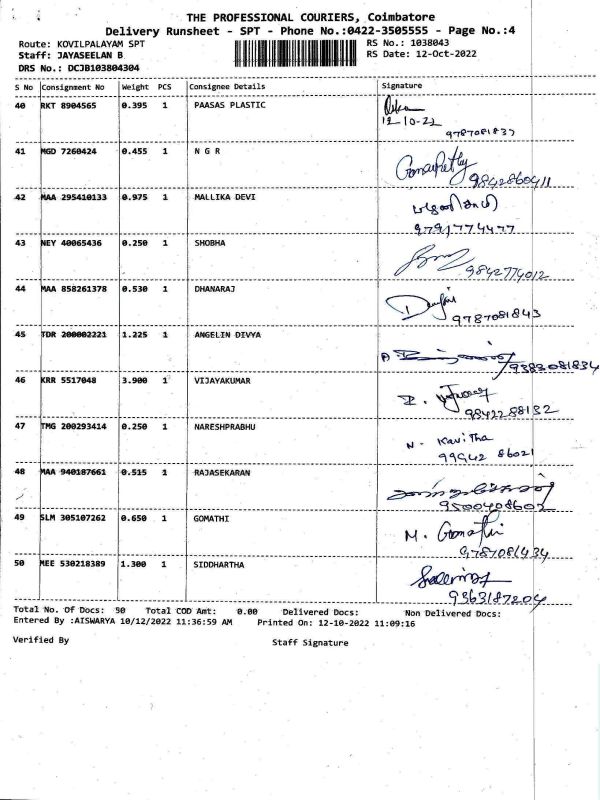 THE PROFESSIONAL COURIERS, Coimbatore
Delivery Runsheet - SPT - Phone No.:0422-3505555 - Page No.:4
Route: KOVILPALAYAM SPT
RS No.: 1038043
Staff: JAYASEELAN B
RS Date: 12-Oct-2022
DRS No.: DCJB103804304
S No Consignment No Weight PCS Consignee Details Signature
40 RKT 8904565 0.395 1 PAASAS PLASTIC
12-10-22
9787081837
41 MGD 7260424 0.455 1 N G R
9842860411
42 MAA 295410133 0.975 1 MALLIKA DEVI
9791774477
43 NEY 40065436 0.250 1 SHOBHA
9842774012
44 MAA 858261378 0.530 1 DHANARAJ
9787081843
45 TDR 200002221 1.225 1 ANGELIN DIVYA
9383081834
46 KRR 5517048 3.900 1 VIJAYAKUMAR
9842288132
47 TMG 200293414 0.250 1 NARESHPRABHU
N. Kavitha
99942 86021
48 MAA 940187661 0.515 1 RAJASEKARAN
9500408602
49 SLM 305107262 0.650 1 GOMATHI
M. Gomathi
9787081434
50 MEE 530218389 1.300 1 SIDDHARTHA
9363187204
Total No. Of Docs: 50 Total COD Amt: 0.00 Delivered Docs: Non Delivered Docs:
Entered By :AISWARYA 10/12/2022 11:36:59 AM Printed On: 12-10-2022 11:09:16
Verified By Staff Signature